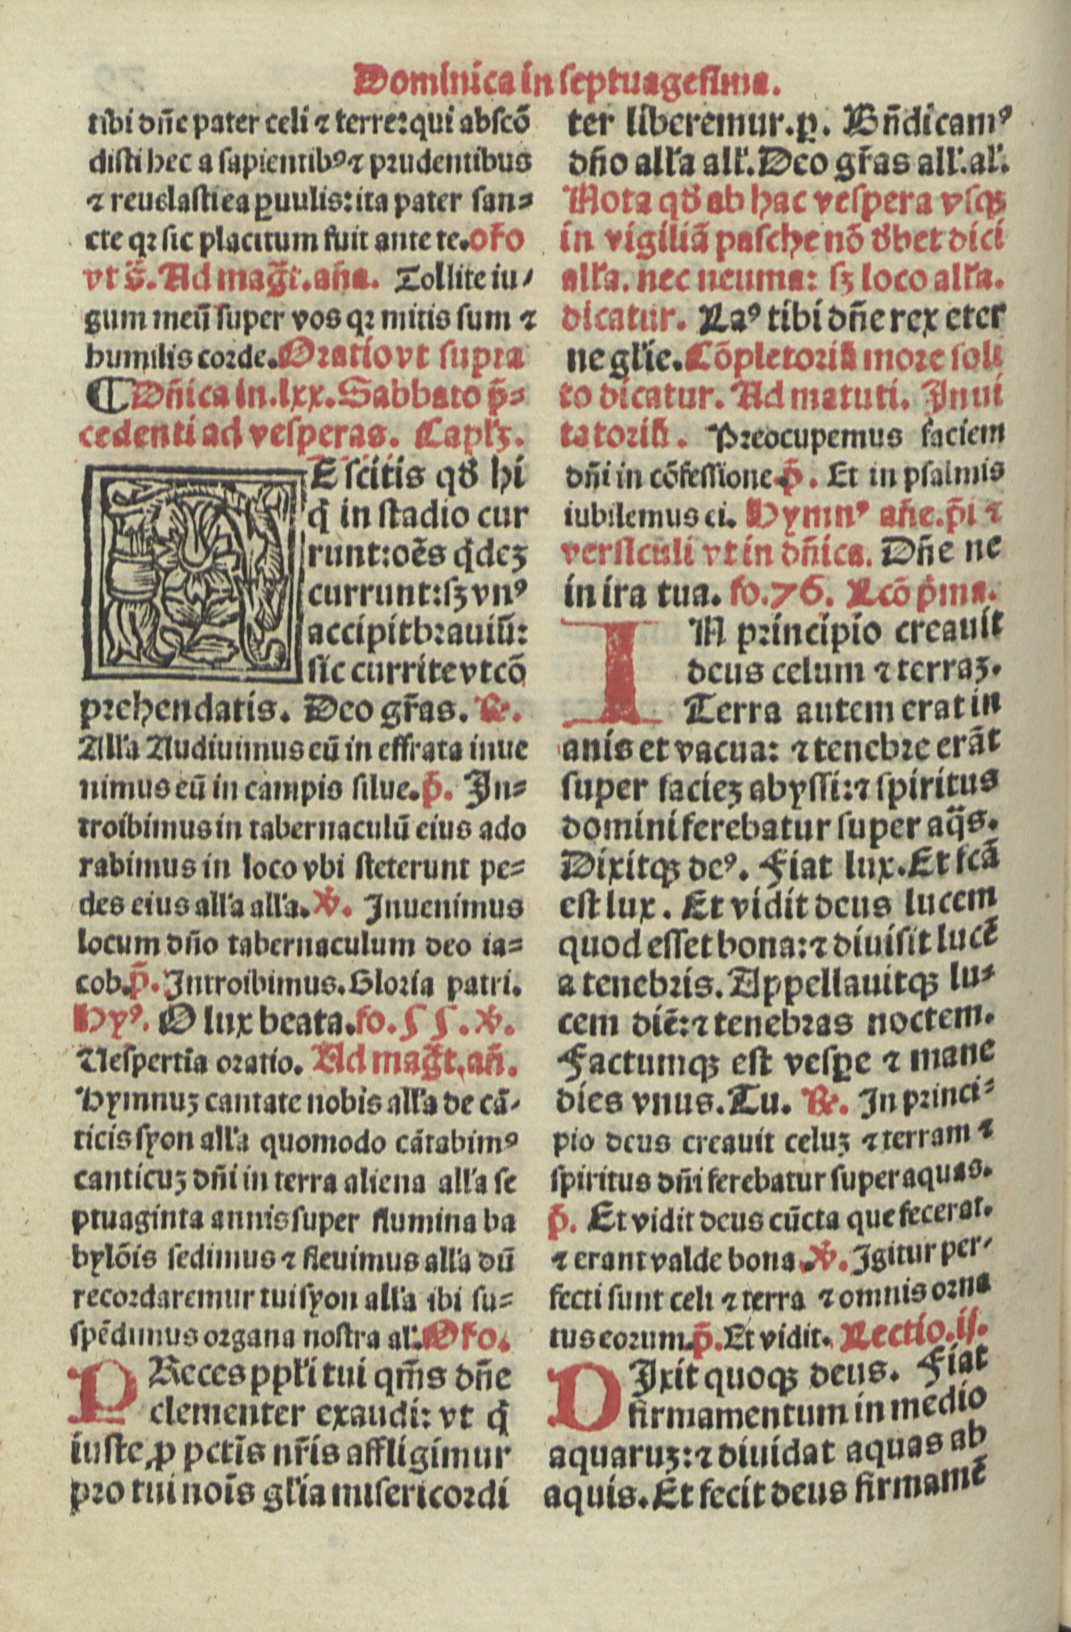 Dominica in septuagesima.
tibi dñe pater celi ⁊ terre:qui abscõ
disti hec a sapientibꝰ⁊ prudentibus
⁊ reuelasti ea ꝑuulis:ita pater san⸗
cte qꝛ sic placitum fuit ante te.oro
vt s̃. Ad mag̃t.aña. Tollite iu⸗
gum meũ super vos qꝛ mitis sum ⁊
humilis corde.Oratio vt supra
¶ Dñica in.lxx.Sabbato p̃⸗
cedenti ad vesperas. Caplꝫ.
NEscitis qđ hi
q̇ in stadio cur
runt:oẽs q̇dez
currunt:sꝫ vnꝰ
accipit brauiũ:
sic currite vt cõ
prehendatis. Deo gr̃as. ℞.
Alľa Audiuimus eũ in effrata inue
nimus eũ in campis silue.p̃. In⸗
troibimus in tabernaculũ eius ado
rabimus in loco vbi steterunt pe⸗
des eius alľa alľa.℣. Inuenimus
locum dño tabernaculum deo ia⸗
cob.p̃.Introibimus.Gloria patri.
Hyꝰ. O lux beata.fo.55.℣.
Uespertia oratio. Ad mag̃t.añ.
Hymnuz cantate nobis alľa de cã⸗
ticis syon alľa quomodo cãtabimꝰ
canticuz dñi in terra aliena alľa se
ptuaginta annis super flumina ba
bylõis sedimus ⁊ fleuimus alľa dũ
recordaremur tui syon alľa ibi su⸗
spẽdimus organa nostra aľ.Oro.
PReces ppľi tui qm̃s dñe
clementer exaudi: vt q̇
iuste ꝓ pctĩs nr̃is affligimur
pro tui noĩs gľia misericordi
ter liberemur.ꝑ. Bñdicamꝰ
dño alľa alľ.Deo gr̃as alľ.aľ.
Nota qđ ab hac vespera vsqꝫ
in vigiliã pasche nõ đbet dici
alľa. nec neuma: sꝫ loco alľa.
dicatur. Laꝰ tibi dñe rex eter
ne gľie.Cõpletoriũ more soli
to dicatur. Ad matuti. Inui
tatoriũ. Preocupemus faciem
dñi in cõfessione.p̃. Et in psalmis
iubilemus ei. Hymnꝰ añe.p̃i ⁊
versiculi vt in dñica. Dñe ne
in ira tua. fo.76. Lcõ ṗma.
IN principio creauit
deus celum ⁊ terraz.
Terra autem erat in
anis et vacua: ⁊ tenebre erãt
super faciez abyssi:⁊ spiritus
domini ferebatur super aq̃s.
Dixitqꝫ deꝰ. Fiat lux.Et fcã
est lux. Et vidit deus lucem
quod esset bona:⁊ diuisit lucẽ
a tenebris. Appellauitqꝫ lu⸗
cem diẽ:⁊ tenebras noctem.
Factumqꝫ est vesꝑe ⁊ mane
dies vnus.Tu. ℞. In princi⸗
pio deus creauit celuz ⁊ terram ⁊
spiritus dñi ferebatur super aquas.
p̃. Et vidit deus cũcta que fecerat.
⁊ erant valde bona.℣.Igitur per⸗
fecti sunt celi ⁊ terra ⁊ omnis orna
tus eorum.p̃.Et vidit. Lectio.ij.
DIxit quoqꝫ deus. Fiat
firmamentum in medio
aquaruz:⁊ diuidat aquas ab
aquis.Et fecit deus firmamẽ